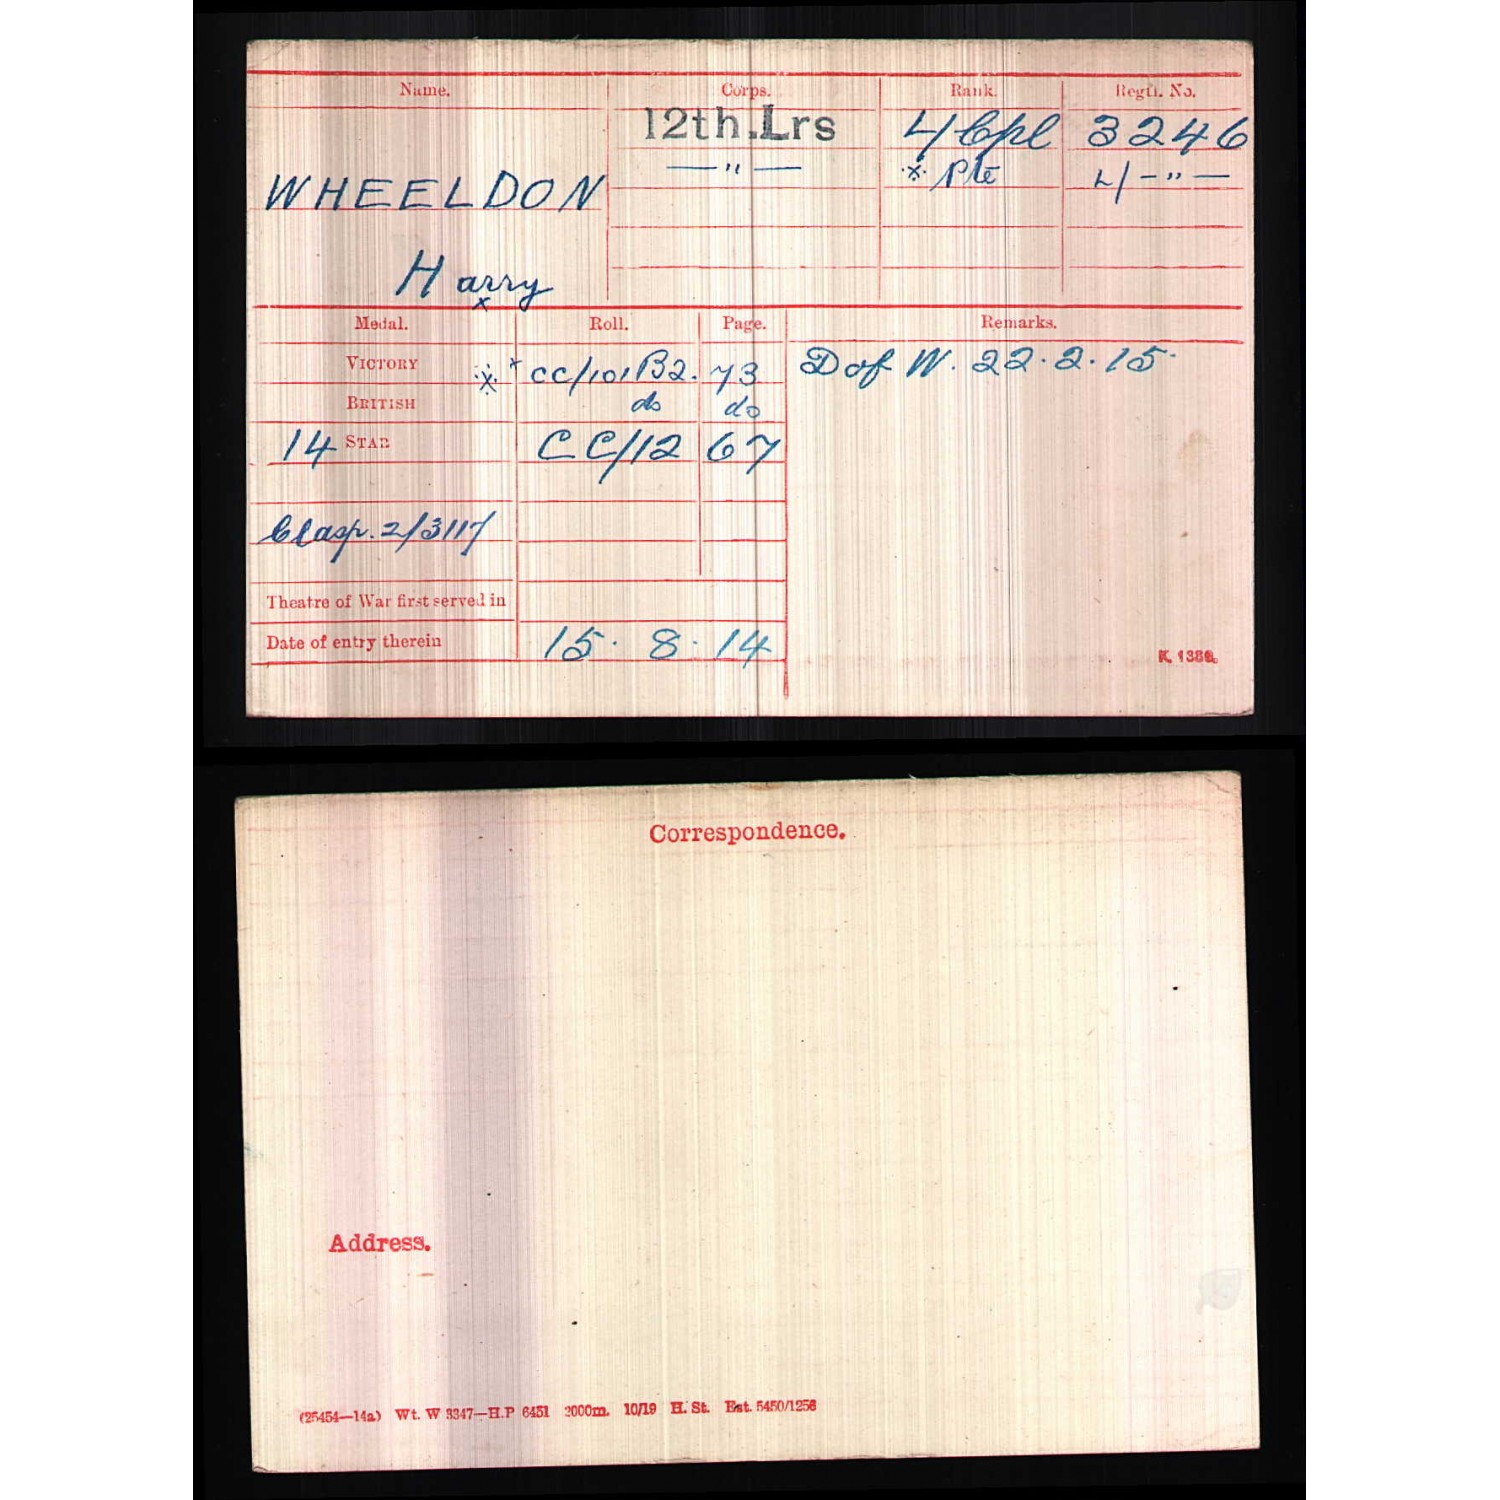 Name. Corps. Rank. Regtl. No.
12th.Lrs L/Cpl 3246
—"— * Pte L/—"—
WHEELDON
Harry
x
Medal. Roll. Page. Remarks.
VICTORY * CC/101B2. 73 D of W. 22.2.15.
BRITISH do do
14 STAR CC/12 67
Clasp. 2/3117
Theatre of War first served in
Date of entry therein 15. 8. 14
K. 1380.
Correspondence.
Address.
(25454—14a) Wt. W 3347—H.P 6451 2000m. 10/19 H. St. Est. 5450/1256